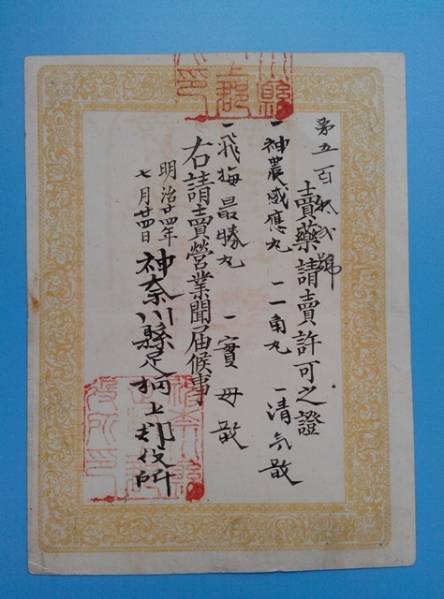 第五百拾弐號
賣藥請賣許可之證
一神農感應丸 一一角丸 一清氣散
一飛梅昌勝丸 一實母散
右請賣營業聞届候事
明治廿四年
七月廿四日
神奈川縣足柄上郡役所